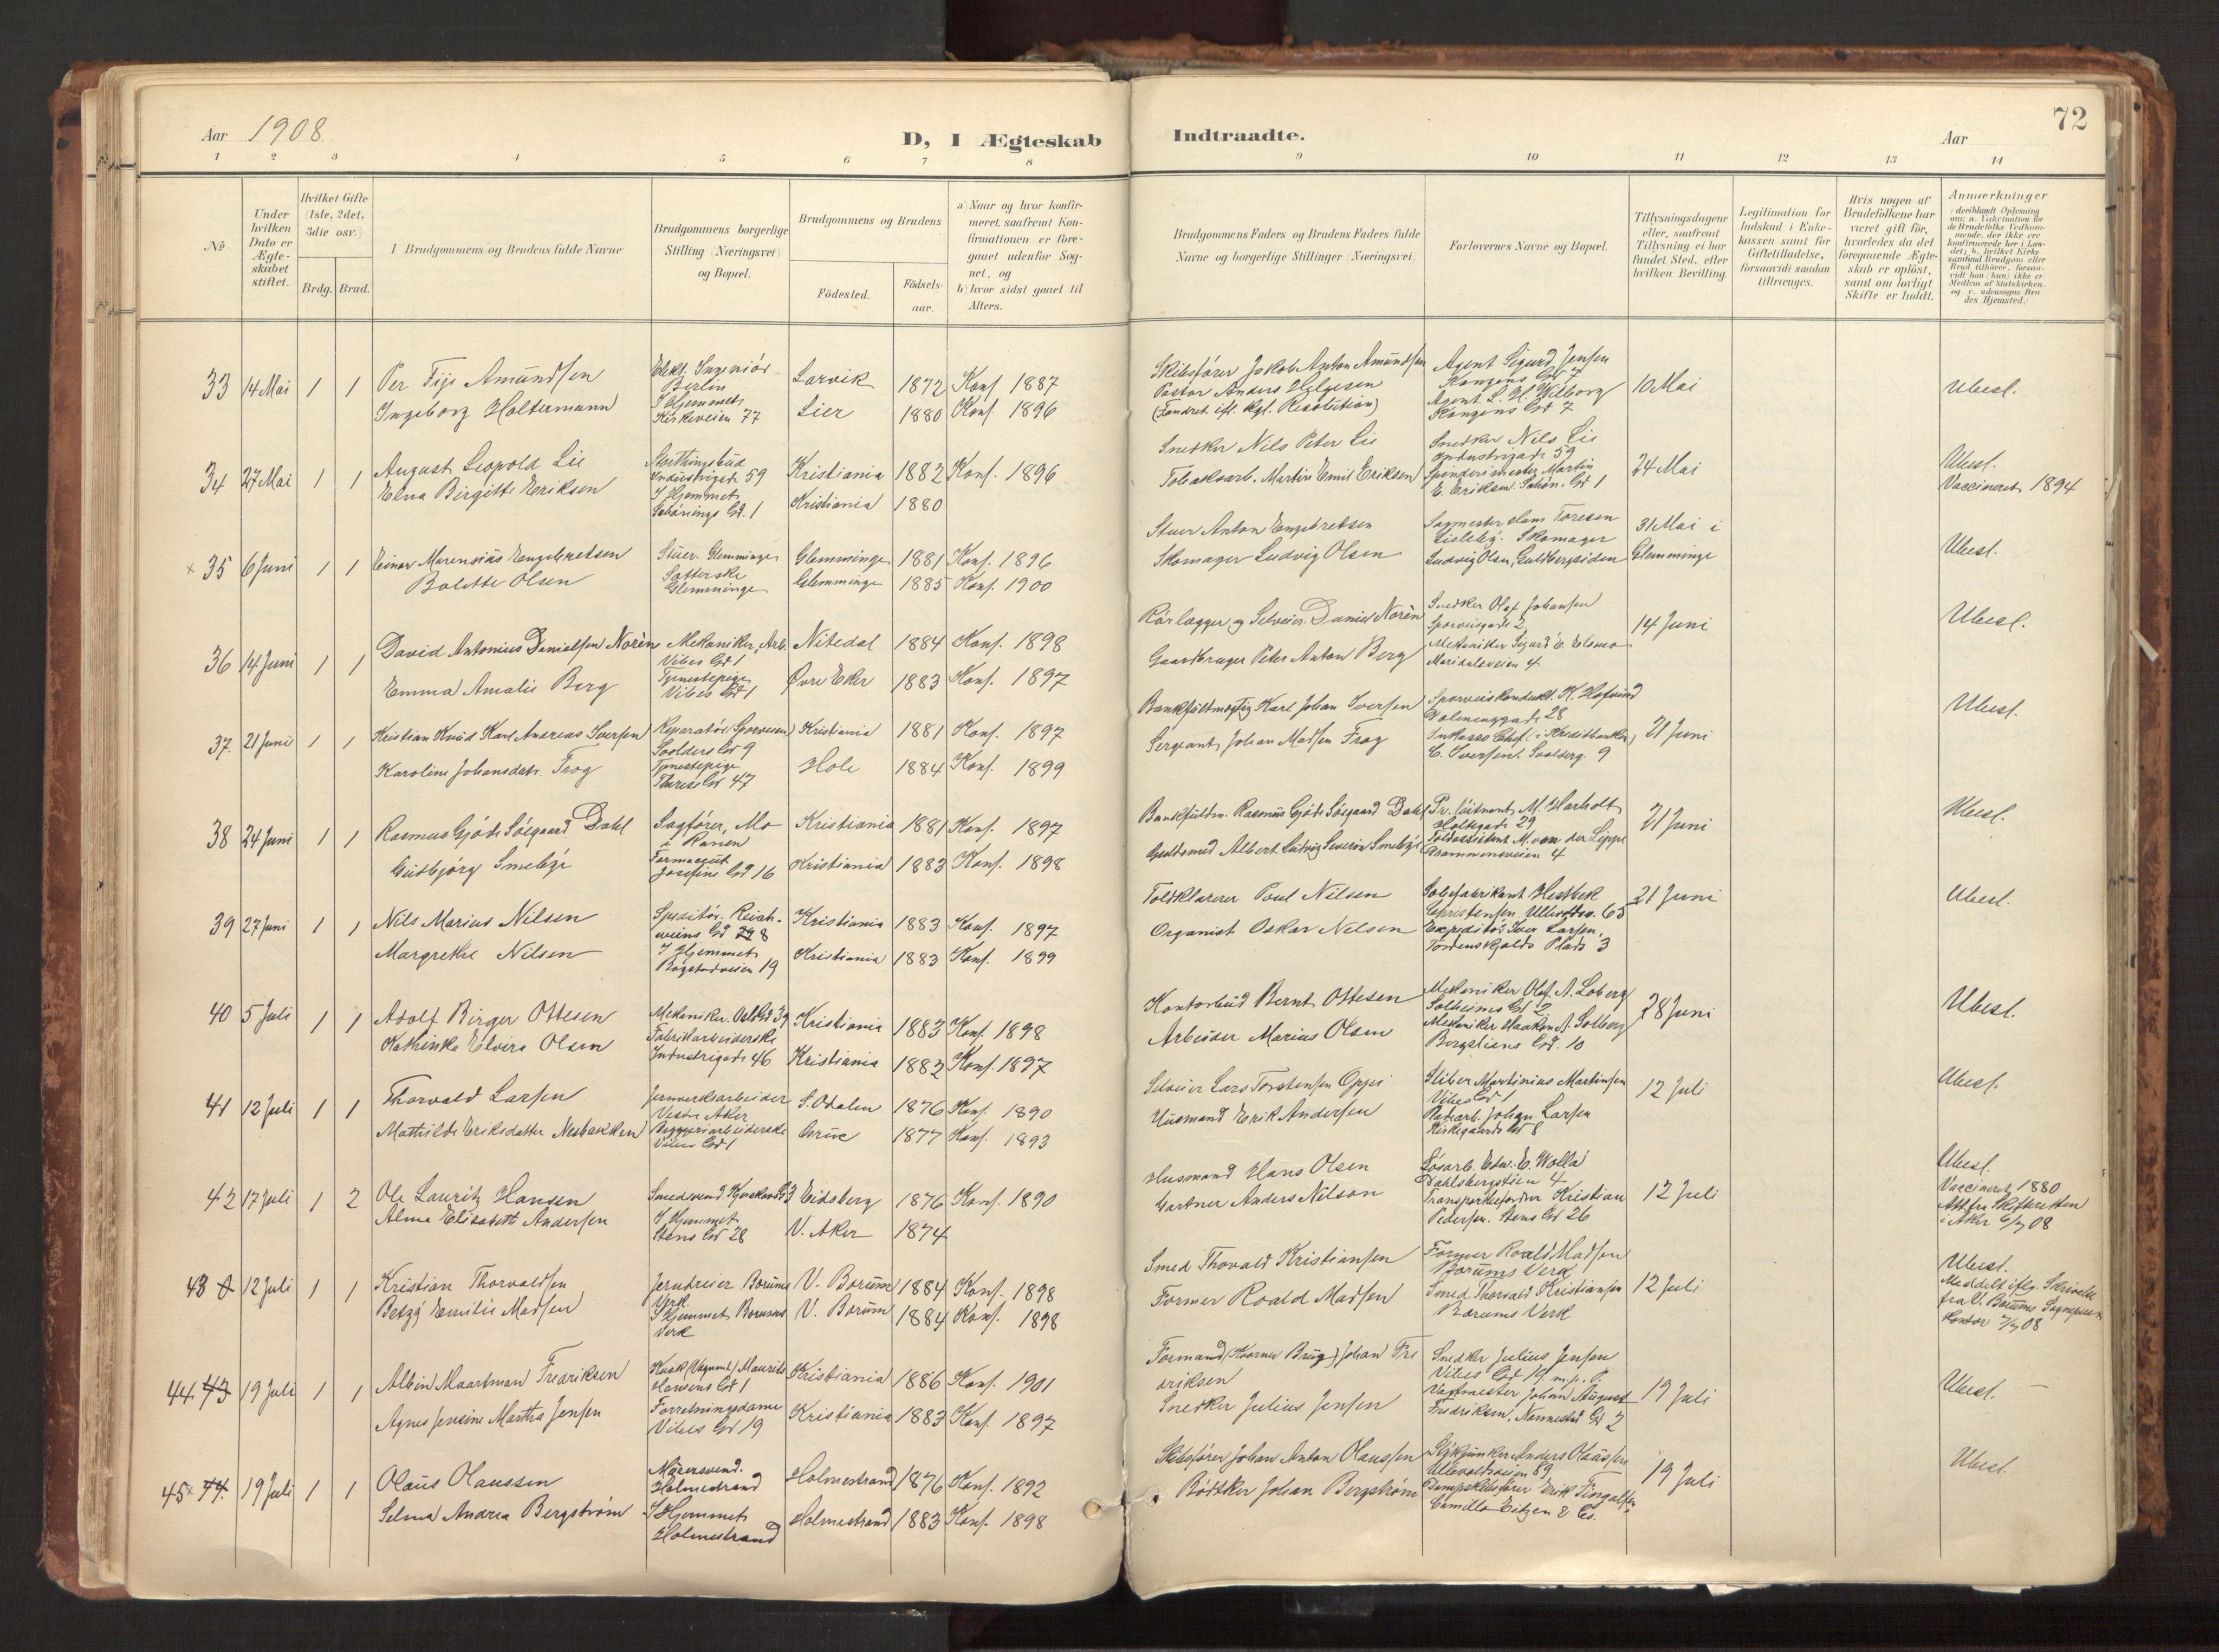 Aar 1908.
D, I Ægteskab
Indtraadte.
Aar
72
1 2 3 4 5 6 7 8 9 10 11 12 13 14
No.
Under hvilken Dato er Ægteskabet stiftet.
Hvilket Gifte (1ste, 2det, 3die osv.)
Brdg. Brud.
Brudgommens og Brudens fulde Navne
Brudgommens borgerlige Stilling (Næringsvei) og Bopæl.
Brudgommens og Brudens
Födested.
Födsels-aar.
a) Naar og hvor konfirmeret, saafremt Konfirmationen er foregaaet udenfor Sognet, og
b) hvor sidst gaaet til Alters.
Brudgommens Faders og Brudens Faders fulde Navne og borgerlige Stillinger (Næringsvei)
Forlovernes Navne og Bopæl.
Tillysningsdagene eller, saafremt Tillysning ei har fundet Sted, efter hvilken Bevilling.
Legitimation for Indskud i Enkekassen samt for Giftetilladelse, forsaavidt saadan tiltrænges.
Hvis nogen af Brudefolkene har været gift för, hvorledes da det foregaaende Ægteskab er oplöst, samt om lovligt Skifte er holdt.
Anmærkninger
33 14 Mai 1 1
Per Fije Amundsen
Ingeborg Holtermann
Elekt. Ingeniör
Berlin
I Hjemmet
Kirkeveien 77
Larvik 1872 Konf. 1887
Lier 1880 Konf. 1896
Skibsförer Jakob Anton Amundsen
Pastor Anders Helgesen
(Forandret ifl. Kgl. Resolution)
Agent Sigurd Jensen
Kongens Gd 7
Agent L. H. Wiborg
Kongens Gd 7
10 Mai
Ubesl.
34 27 Mai 1 1
August Leopold Lie
Elna Birgitte Eriksen
Storthingsbud
Industrigade 59
I Hjemmet
Schönings Gd. 1
Kristiania 1882 Konf. 1896
Kristiania 1880
Snedker Nils Peter Lie
Tobaksarb. Martin Emil Eriksen
Snedker Nils Lie
Industrigade 59
Spinderimester Martin
E. Eriksen. Schön. Gd 1
24 Mai
Ubesl.
Vaccineret 1894
× 35 6 Juni 1 1
Einar Marensius Engebretsen
Bolette Olsen
Stuer. Glemminge
Sætterske
Glemminge
Glemminge 1881 Konf. 1896
Glemminge 1885 Konf. 1900
Stuer Anton Engebretsen
Skomager Ludvig Olsen
Sagmester Hans Toresen
Lisleby. Skomager
Ludvig Olsen, Guldbergsiden
31 Mai i
Glemminge
Ubesl.
36 14 Juni 1 1
David Antonius Danielsen Norén
Emma Amalie Berg
Mekaniker, Arb.
Vibes Gd 1
Tjenestepige
Vibes Gd 1
Nitedal 1884 Konf. 1898
Övre Eker 1883 Konf. 1897
Rörlægger og Selveier Daniel Norén
Gaardbruger Peter Anton Berg
Snedker Olaf Johansen
Sporveisgade 2
Mekaniker Sigurd E. Elomo
Maridalsveien 4
14 Juni
Ubesl.
37. 21 Juni 1 1
Kristian Knud Karl Andreas Iversen
Karoline Johansdatr. Frog
Reparatör (Sporveien)
Soolders Gd 9
Tjenestepige
Therese Gd 47
Kristiania 1881 Konf. 1897
Hole 1884 Konf. 1899
Bankfuldmægtig Karl Johan Iversen
Sergeant Johan Madsen Frog
Sporveiskonduktr. K. Hofsund
21 Juni
Ubesl.
38 24 Juni 1 1
Rasmus Gjöde Söegaard Dahl
Gudbjörg Smebye
Sagförer, Mo
i Ranen
Farmaceut
Josefine Gd 16
Kristiania 1881 Konf. 1897
Kristiania 1883 Konf. 1898
Bankfuldm. Rasmus Gjöde Söegaard Dahl
Guldsmed Albert Ludvig Severin Smebye
Pr. löitnant M. Harholt
Holtegade 29
Toldassistent M. von der Lippe
Drammensveien 4
21 Juni
Ubesl.
39 27 Juni 1 1
Nils Marius Nilsen
Margrethe Nilsen
Speditör. Reich-
weins Gd
I Hjemmet
Bogstadveien 19
Kristiania 1883 Konf. 1897
Kristiania 1883 Konf. 1899
Toldklarerer Poul Nilsen
Organist Oskar Nilsen
Christensen, Ullevoldsv. 65
Expeditör Iver Larsen,
Tordenskjolds Plads 3
21 Juni
Ubesl.
40 5 Juli 1 1
Adolf Birger Ottesen
Kathinka Elvira Olsen
Mekaniker. Oslo Gd 39
Fabrikarbeiderske
Industrigade 46
Kristiania 1883 Konf. 1898
Kristiania 1882 Konf. 1897
Kontorbud Bernt Ottesen
Arbeider Marius Olsen
Mekaniker Olaf A. Loberg
Solheims Gd 2
Mekaniker Haakon A. Solberg
Bergsliens Gd. 10
28 Juni
Ubesl.
41 12 Juli 1 1
Thorvald Larsen
Mathilde Eriksdatter Nesbakken
Jernverksarbeider
Vestre Aker
Bryggeriarbeiderske
Vibes Gd 1
S. Odalen 1876 Konf. 1890
Grue 1877 Konf. 1893
Selveier Lars Torstensen Oppi
Husmand Erik Andersen
Sliber Martinius Martinsen
Vibes Gd 1
Johan Larsen
Kirkegaards Gd 8
12 Juli
Ubesl.
42 17 Juli 1 2
Ole Lauritz Hansen
Alma Elisabeth Andersen
I Hjemmet
Stens Gd 28
Eidsberg 1876 Konf. 1890
V. Aker 1874
Husmand Hans Olsen
Gartner Anders Nilson
Lösarb. Edw. E. Wolla
Dahlsbergstien 4
Transportbefordrer Kristian
Pedersen. Stens Gd 26
12 Juli
Ubesl.
Vaccineret 1880
Att. fra Skifteretten
i Aker 6/7 08
43 12 Juli 1 1
Kristian Thorvaldsen
Betzy Emilie Madsen
Jerndreier. Bærums
Verk
I Hjemmet Bærums
Verk
V. Bærum 1884 Konf. 1898
V. Bærum 1884 Konf. 1898
Smed Thorvald Kristiansen
Former Roald Madsen
Former Roald Madsen
Bærums Verk
Smed Thorvald Kristiansen
Bærums Verk
12 Juli
Ubesl.
Meddelt iflg. Skrivelse
fra V. Bærums Sogneprest
Kontor /7 08
44 43 19 Juli 1 1
Albin Maartman Fredriksen
Agnes Jensine Martha Jensen
Kusk (Vognmd) Mauritz
Hansens Gd 1
Forretningsdame
Vibes Gd 19
Kristiania 1886 Konf. 1901
Kristiania 1883 Konf. 1897
Formand (Foornes Brug) Johan Fre
driksen
Snedker Julius Jensen
Snedker Julius Jensen
Vibes Gd 19
Vagtmester Johan August
Fredriksen, Nannestad Gd 2
19 Juli
Ubesl. —
45 × 44. 19 Juli 1 1
Olaus Olaussen
Selma Andrea Bergström
Murersvend.
Holmestrand
I Hjemmet
Holmestrand
Holmestrand 1876 Konf. 1892
Holmestrand 1883 Konf. 1898
Skibsförer Johan Anton Olaussen
Bödtker Johan Bergström
Anders Olaussen
Ullevoldsveien 89
Dampskibsförer Erik Tingulsen
Camillo Eitzen & Co.
19 Juli
Ubesl.